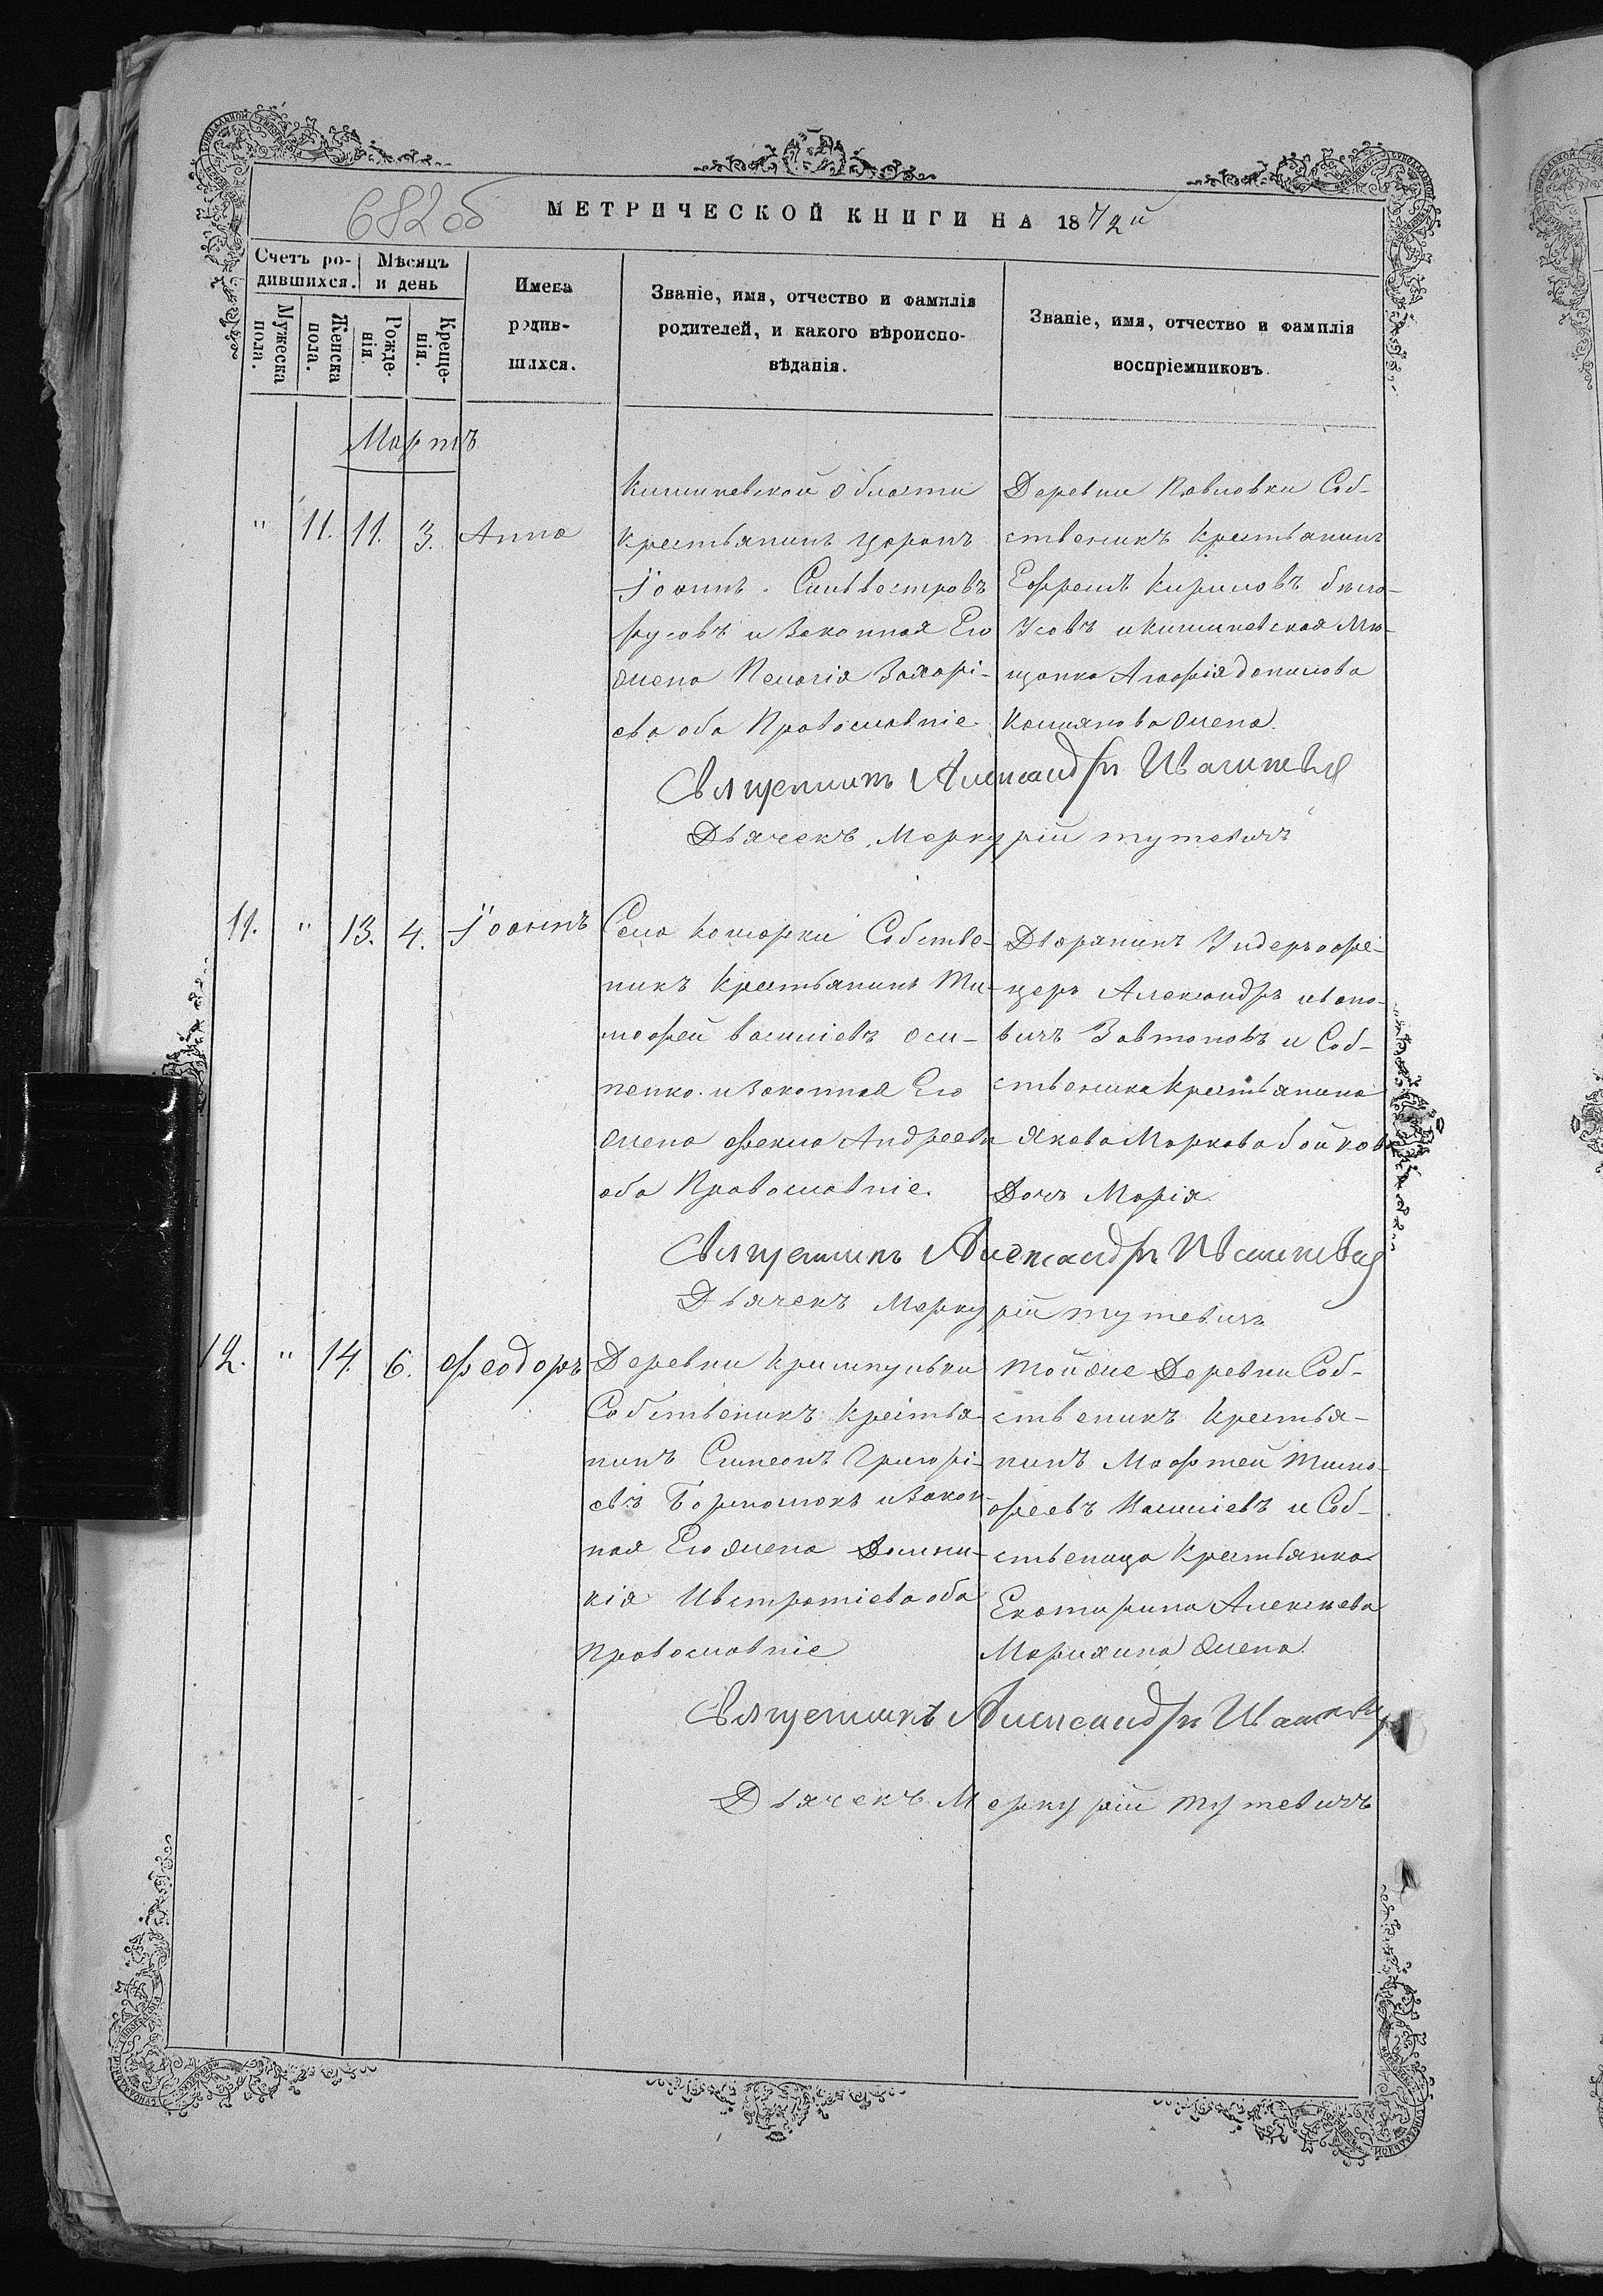 682об
МЕТРИЧЕСКОЙ КНИГИ НА 1872й
Счетъ ро-
дившихся.
Мѣсяцъ
и день
Мужеска
пола.
Женска
пола.
Рожде-
нія.
Креще-
нія.
Имена
родив-
шихся.
Званіе, имя, отчество и фамилія
родителей, и какого вѣроиспо-
вѣданія.
Званіе, имя, отчество и фамилія
воспріемниковъ.
Мартъ
" 11. 11. 3. Анна
Кишиневской области
Крестьянинъ царанъ
Іоаннъ Сильвестровъ
русовъ и Законная Его
жена Пелагія Захарі-
ева оба Православніе.
Деревни Павловки Соб-
ственикъ Крестьянинъ
Ефремъ Кириловъ бѣло-
Усовъ и Кишиневская Мѣ-
щанка Агафія данилова
жена.
Священникъ Александръ
Дьячекъ Меркурій тутевичъ
11. " 13. 4. Іоаннъ
Села комарки Собстве-
никъ Крестьянинъ Ти-
мофей василіевъ оси-
пенко и Законная Его
жена фекла Андреева
оба Православніе.
Дворянинъ Ундерофѣ-
церъ Александръ ивано-
вичъ Завтоновъ и Соб-
ственика Крестьянина
Якова Маркова бойкова
Доч Марія.
Священникъ Александръ
Дьячекъ Меркурій тутевичъ
12. " 14. 6. феодоръ
Деревни
Собственикъ Крестья-
нинъ Симеонъ Григорі-
евъ и Закон-
ная Его жена Домни-
кія Ивстратіева оба
Православніе
Тойже Деревни Соб-
ственикъ Крестья-
нинъ Мафтей Тимо-
феевъ и Соб-
ственица Крестьянка
Екатирина Алексѣева
жена.
Священникъ Александръ
Дьячекъ Меркурій Тутевичъ